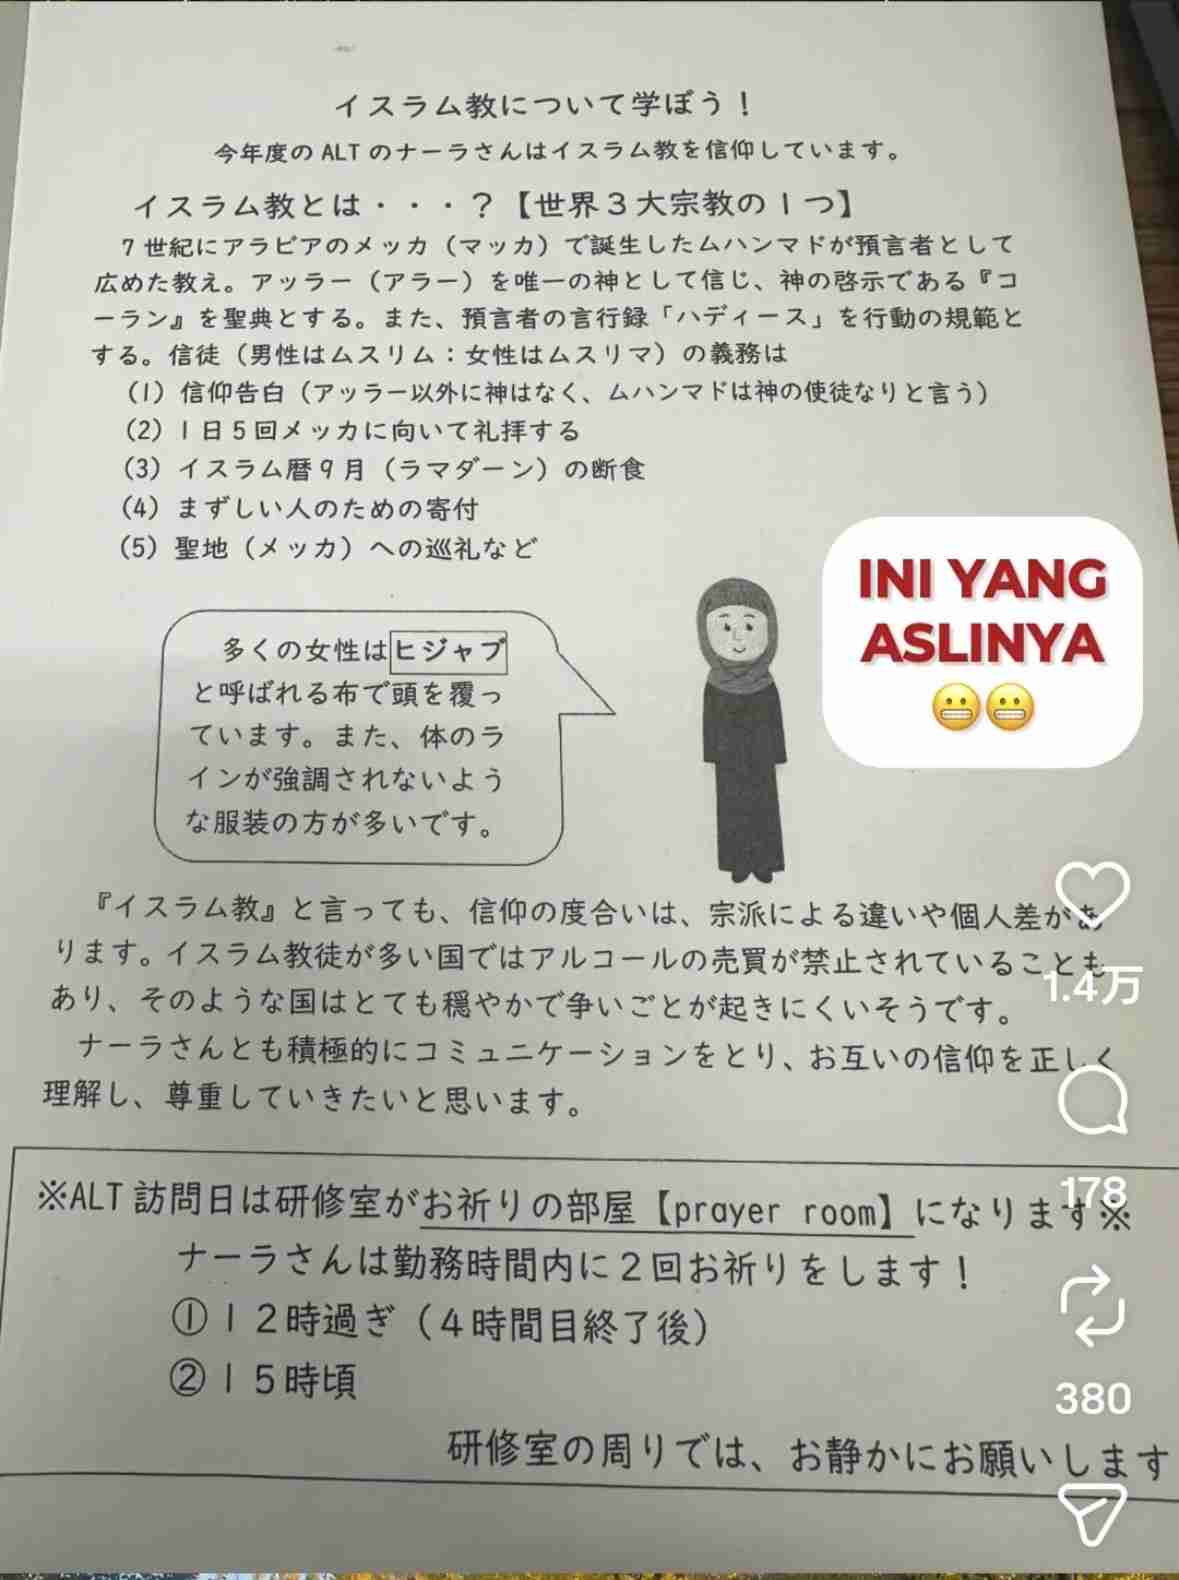 イスラム教について学ぼう！
今年度のALTのナーラさんはイスラム教を信仰しています。
イスラム教とは・・・？【世界３大宗教の１つ】
７世紀にアラビアのメッカ（マッカ）で誕生したムハンマドが預言者として
広めた教え。アッラー（アラー）を唯一の神として信じ、神の啓示である『コ
ーラン』を聖典とする。また、預言者の言行録「ハディース」を行動の規範と
する。信徒（男性はムスリム：女性はムスリマ）の義務は
（1）信仰告白（アッラー以外に神はなく、ムハンマドは神の使徒なりと言う）
（2）１日５回メッカに向いて礼拝する
（3）イスラム暦９月（ラマダーン）の断食
（4）まずしい人のための寄付
（5）聖地（メッカ）への巡礼など
INI YANG
ASLINYA
😬😬
多くの女性はヒジャブ
と呼ばれる布で頭を覆っ
ています。また、体のラ
インが強調されないよう
な服装の方が多いです。
『イスラム教』と言っても、信仰の度合いは、宗派による違いや個人差があ
ります。イスラム教徒が多い国ではアルコールの売買が禁止されていることも
あり、そのような国はとても穏やかで争いごとが起きにくいそうです。
ナーラさんとも積極的にコミュニケーションをとり、お互いの信仰を正しく
理解し、尊重していきたいと思います。
1.4万
178
380
※ALT訪問日は研修室がお祈りの部屋【prayer room】になります※
ナーラさんは勤務時間内に２回お祈りをします！
①１２時過ぎ（４時間目終了後）
②１５時頃
研修室の周りでは、お静かにお願いします